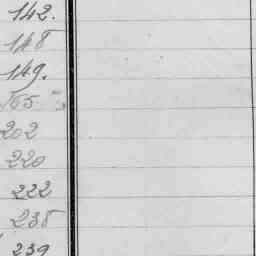 142.
148
149.
165
202
220
222
238
239